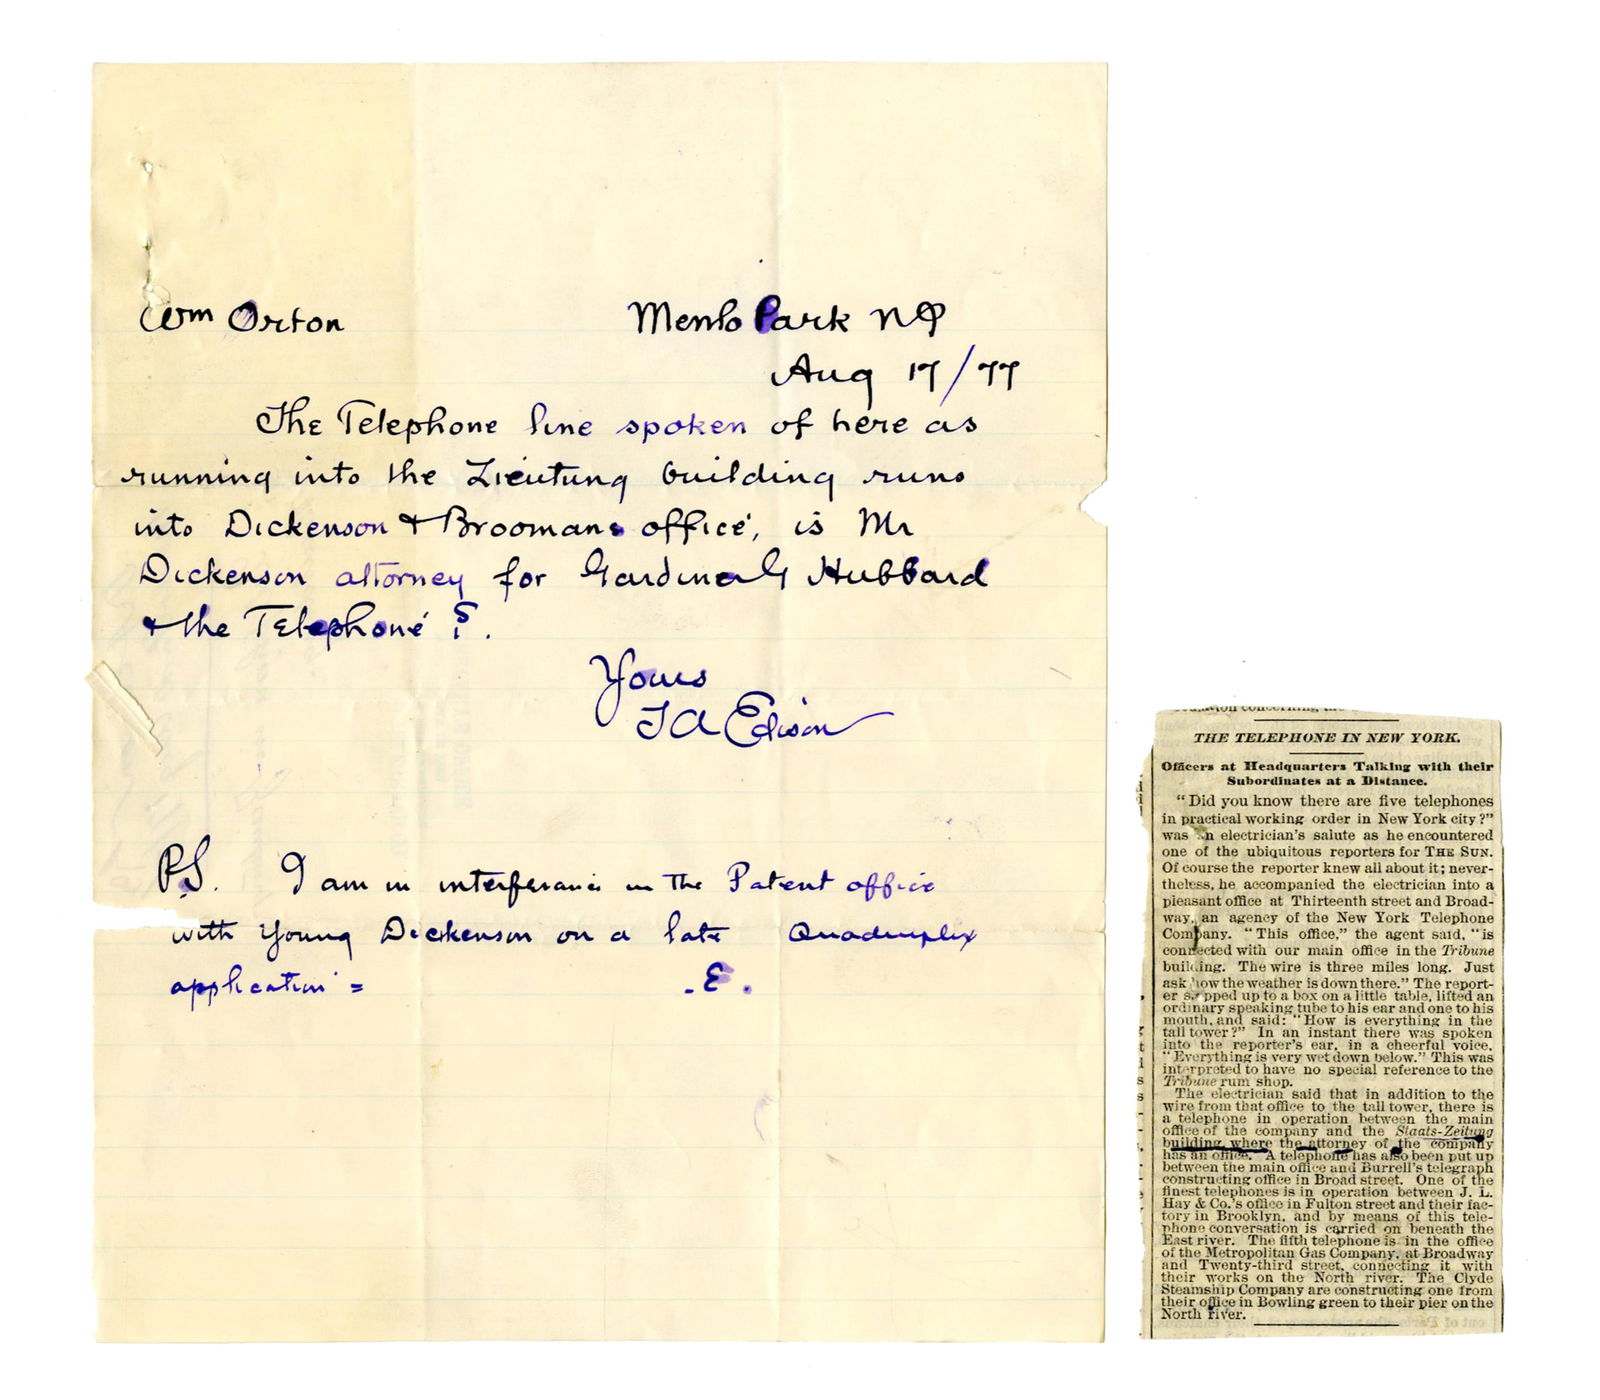 Wm Orton
Menlo Park NJ
Aug 17/77
The Telephone line spoken of here as
running into the Zieutung building runs
into Dickenson & Broomans office, is Mr
Dickenson attorney for Gardiner G Hubbard
& the Telephone ?.
Yours
T A Edison
PS. I am in interference in the Patent office
with Young Dickenson on a late Quadruplex
application =
.E.
THE TELEPHONE IN NEW YORK.
Officers at Headquarters Talking with their
Subordinates at a Distance.
"Did you know there are five telephones
in practical working order in New York city?"
was an electrician's salute as he encountered
one of the ubiquitous reporters for THE SUN.
Of course the reporter knew all about it; never-
theless, he accompanied the electrician into a
pleasant office at Thirteenth street and Broad-
way, an agency of the New York Telephone
Company. "This office," the agent said, "is
connected with our main office in the Tribune
building. The wire is three miles long. Just
ask how the weather is down there." The report-
er stepped up to a box on a little table, lifted an
ordinary speaking tube to his ear and one to his
mouth, and said: "How is everything in the
tall tower?" In an instant there was spoken
into the reporter's ear, in a cheerful voice,
"Everything is very wet down below." This was
interpreted to have no special reference to the
Tribune rum shop.
The electrician said that in addition to the
wire from that office to the tall tower, there is
a telephone in operation between the main
office of the company and the Staats-Zeitung
building, where the attorney of the company
has an office. A telephone has also been put up
between the main office and Burrell's telegraph
constructing office in Broad street. One of the
finest telephones is in operation between J. L.
Hay & Co.'s office in Fulton street and their fac-
tory in Brooklyn, and by means of this tele-
phone conversation is carried on beneath the
East river. The fifth telephone is in the office
of the Metropolitan Gas Company, at Broadway
and Twenty-third street, connecting it with
their works on the North river. The Clyde
Steamship Company are constructing one from
their office in Bowling green to their pier on the
North river.